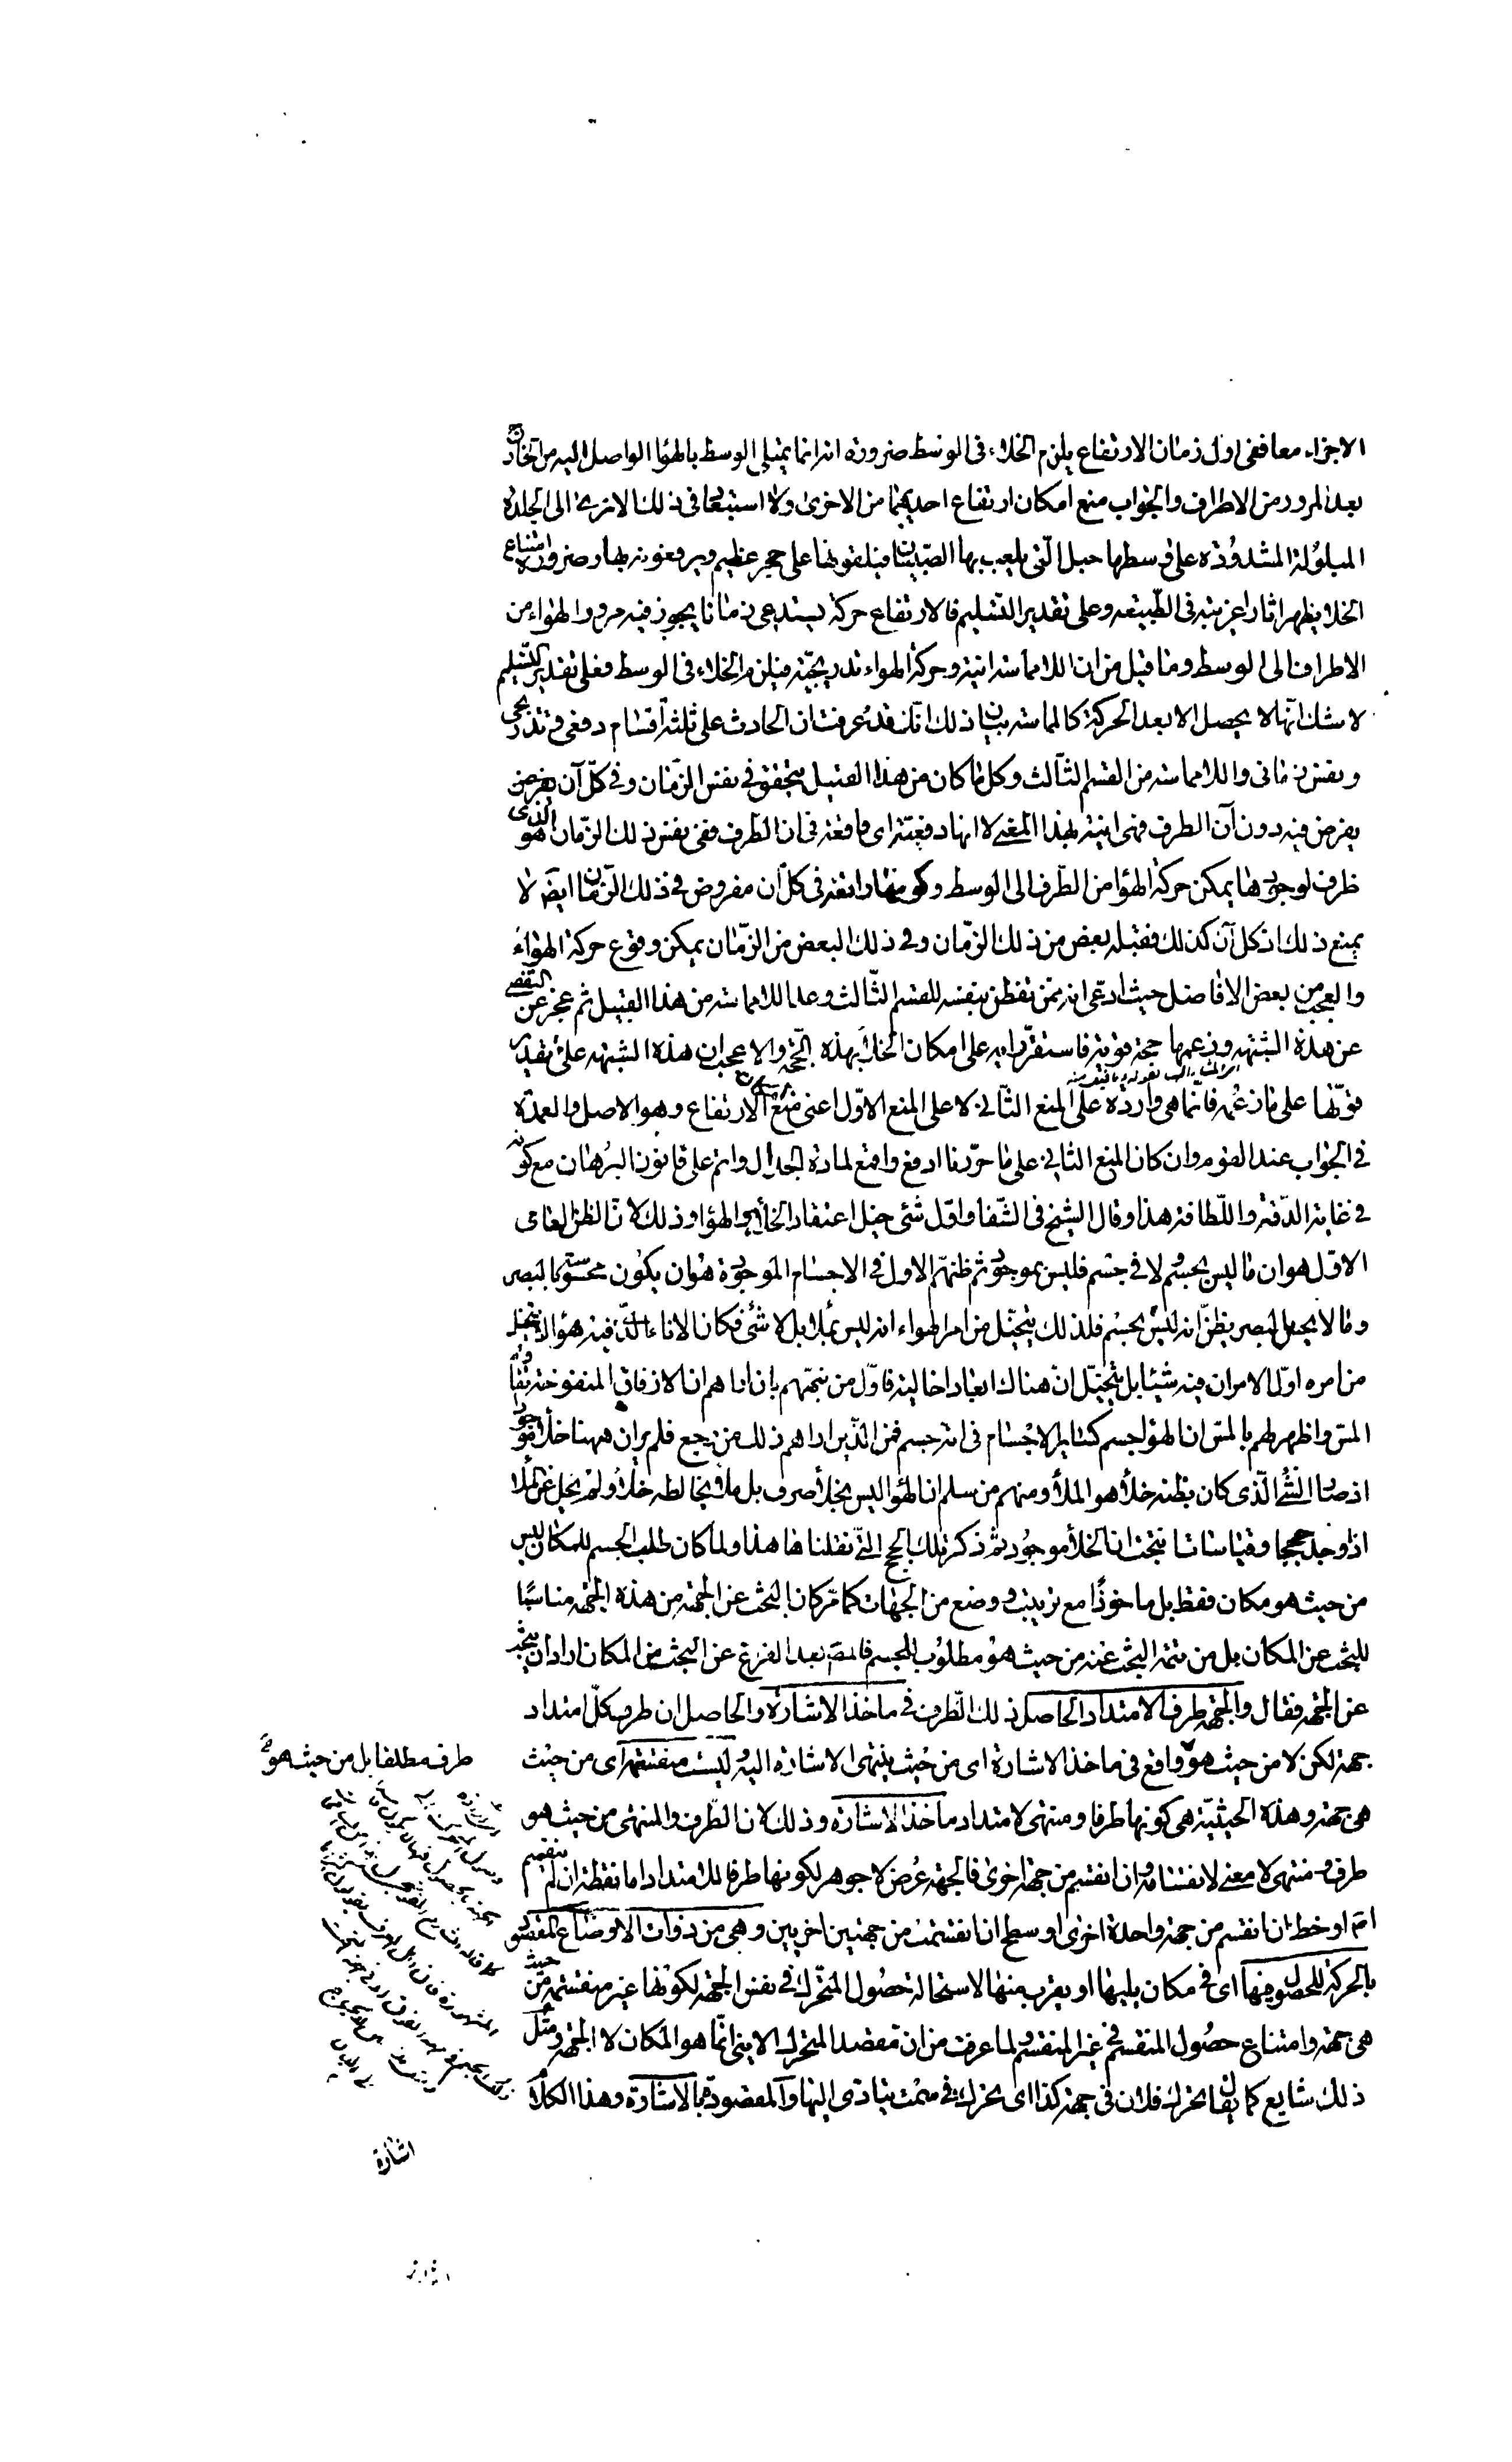 الاجزاء معا ففى اول زمان الارتفاع يلزم الخلاء فى الوسط ضرورة انه انما يمتلى الوسط بالهوا الواصل اليه من الخارج
بعد المرور من الاطراف والجواب منع امكان ارتفاع احديهما من الاخرى ولا استبعاد فى ذلك الا ترى الى الجلدة
المبلولة المشدودة على وسطها حبل التى يلعب بها الصبيان فيلقونها على حجر عظيم ويرفعونه بها وضرورة امتناع
الخلا يظهر اثارا غريبة فى الطبيعه وعلى تقدير التسليم فالارتفاع حركة يستدعى زمانا يجوز فيه مرور الهواء من
الاطراف الى الوسط وما قيل من ان اللامماسة انية وحركة الهواء تدريجية فيلزم الخلاء فى الوسط فعلى تقدير التسليم
لا شك انها لا يحصل الا بعد الحركة كالمماسة بيان ذلك انك قد عرفت ان الحادث على ثلثة اقسام دفعى وتدريجى
وبعض زمانى واللامماسة من القسم الثالث وكل ما كان من هذا القبيل يتحقق فى نفس الزمان وفى كل آن يفرض
يفرض فيه دون آن الطرف فهى انية بهذا المعنى لا انها دفعية اى واقعة فى ان الطرف ففى نفس ذلك الزمان الذى هو
ظرف لوجودها يمكن حركة الهوا من الطرف الى الوسط وكونها واقعة فى كل آن مفروض فى ذلك الزمان ايضا لا
يمنع ذلك اذ كل آن كذلك فقبله بعض من ذلك الزمان وفى ذلك البعض من الزمان يمكن وقوع حركة الهواء
والعجب من بعض الافاضل حيث ادعى انه ممن تفطن بنفسه للقسم الثالث وعد اللامماسة من هذا القبيل ثم عجز عن التفصى
عن هذه الشبهة وزعمها حجة قوية فاستقر رايه على امكان الخلا بهذه الحجة والاعجب ان هذه الشبهة على تقدير
قوتها على ما زعمه فانما هى واردة على المنع الثانى لا على المنع الاول اعنى منع الارتفاع وهو الاصل والعمدة
فى الجواب عند القوم وان كان المنع الثانى على ما حررنا ادفع واقمع لمادة الجدال واتم على قانون البرهان مع كونه
فى غاية الدقة واللطافة هذا وقال الشيخ فى الشفا واول شئ خيل اعتقاد الخلأ هو الهوا وذلك لان الظن العامى
الاول هو ان ما ليس بجسم ولا فى جسم فليس بموجود ثم ظنهم الاول فى الاجسام الموجودة هو ان يكون محسوسا بالبصر
وما لا يحس بالبصر يظن انه ليس بجسم فلذلك يتخيل من امر الهواء انه ليس بملأ بل لا شئ فكان الاناء الذى فيه هواء لا يتخيل
من امره اول الامر ان فيه شيئا بل يتخيل ان هناك ابعادا خالية فاول من نبههم بان اراهم ان الازقاق المنفوخة تقاوم
المس واظهر لهم بالمس ان الهوا جسم كساير الاجسام فى انه جسم فمن الذين اراهم ذلك من رجع فلم ير ان ههنا خلأ موجودا
اذ صار الشئ الذى كان يظنه خلأ هو الملأ ومنهم من سلم ان الهوا ليس بخلأ صرف بل ملأ يخالطه خلأ ولم يخل عن الملا
اذ وجد حججا وقياسات تنتج ان الخلأ موجود ثم ذكر تلك الحجج التى نقلناها هذا ولما كان طلب الجسم للمكان ليس
من حيث هو مكان فقط بل ماخوذا مع ترتيب ووضع من الجهات كما مر كان البحث عن الجهة من هذه الجهة مناسبا
للبحث عن المكان بل من تتمة البحث عنه من حيث هو مطلوب للجسم فالمص بعد الفراغ عن البحث من المكان اراد ان يبحث
عن الجهة فقال والجهة طرف الامتداد الحاصل ذلك الطرف فى ماخذ الاشارة والحاصل ان طرف كل امتداد
جهة لكن لا من حيث هو واقع فى ماخذ الاشارة اى من حيث ينتهى الاشارة اليه ليست منقسمة اى من حيث
طرف مطلقا بل من حيث هو
هى جهة وهذه الحيثية هى كونها طرفا ومنتهى لامتداد ماخذ الاشارة وذلك لان الطرف والمنتهى من حيث هو
طرف ومنتهى لا معنى لانقسامه وان انقسم من جهة اخرى فالجهة عرض لا جوهر لكونها طرفا للامتداد اما نقطة ان لم ينقسم
اصم او خط ان انقسم من جهة واحدة اخرى او سطح ان انقسمت من جهتين اخريين وهى من ذوات الاوضاع المقصودة
بالحركة للحصول فيها اى فى مكان يليها او يقرب منها لاستحالة حصول المتحرك فى نفس الجهة لكونها غير منقسمة من حيث
هى جهة وامتناع حصول المنقسم فى غير المنقسم ولما عرفت من ان مقصد المتحرك الاينى انما هو المكان لا الجهة ومثل
ذلك شايع كما يقال تحرك فلان فى جهة كذا اى تحرك فى سمت يتادى اليها والمقصودة بالاشارة وهذا الكلام
اشارة